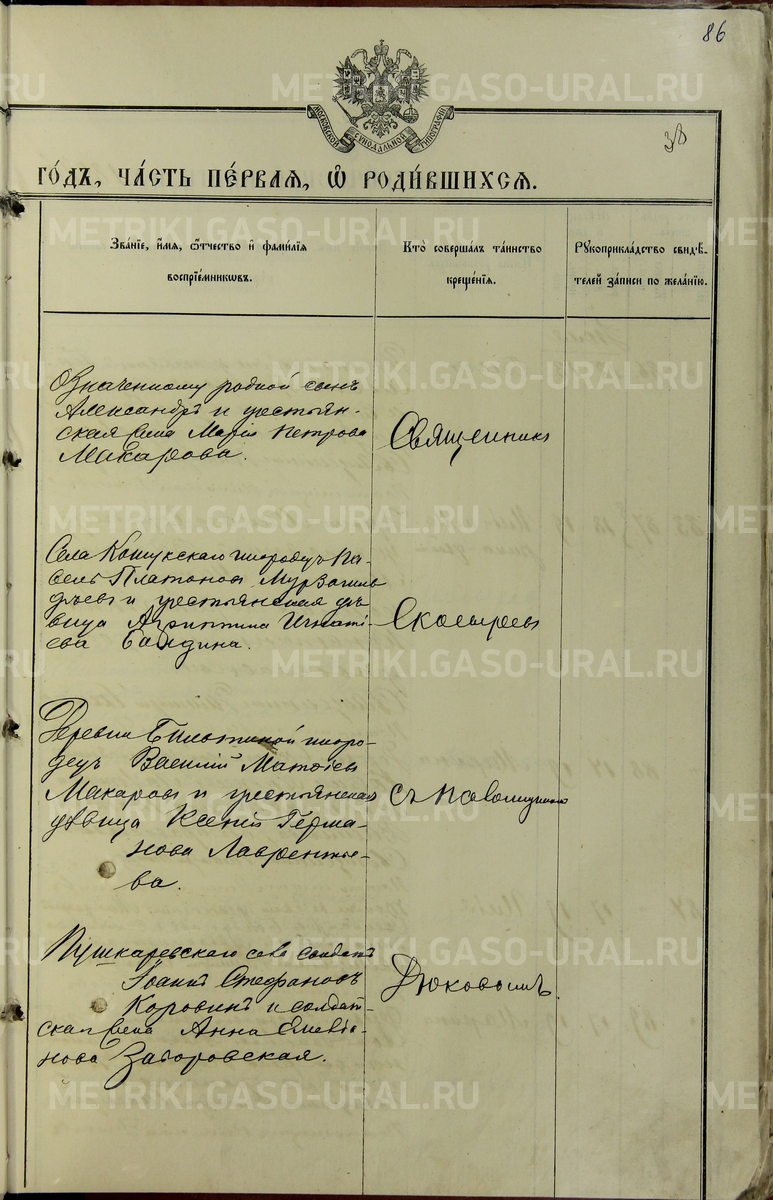 86
METRIKI.GASO-URAL.RU
МОСКОВСКОЙ СѴНОДАЛЬНОЙ ТИПОГРАФІИ
38
ГО́ДЪ, ЧА́СТЬ ПЕ́РВАЯ, Ѽ РОДИ́ВШИХСЯ.
Зва́нїе, и҆́мя, ѻ҆́тчество и҆ фами́лїя
воспрїе́мникѡвъ.
Кто̀ соверша́лъ та́инство
креще́нїя.
Рꙋкоприкла́дство свидѣ́-
телей за́писи по жела́нїю.
Означенному родной сынъ
Александръ и крестьян-
ская Марія Петрова
Макарова.
Священникъ
Села Кошукскаго инородецъ Па-
велъ Платоновъ Мурзагиль
дѣевъ и крестьянская дѣ-
вица Агриппина Игнаті-
ева Байдина.
Скосыревъ
Деревни иноро-
децъ Василій Матѳіевъ
Макаровъ и крестьянская
дѣвица Ксенія Герма-
нова Лаврентье-
ва.
съ псаломщикомъ
Пушкаревскаго села солдатъ
Іоаннъ Стефановъ
Коровинъ и солдат-
ская Анна
нова Загоровская.
Дюковымъ.